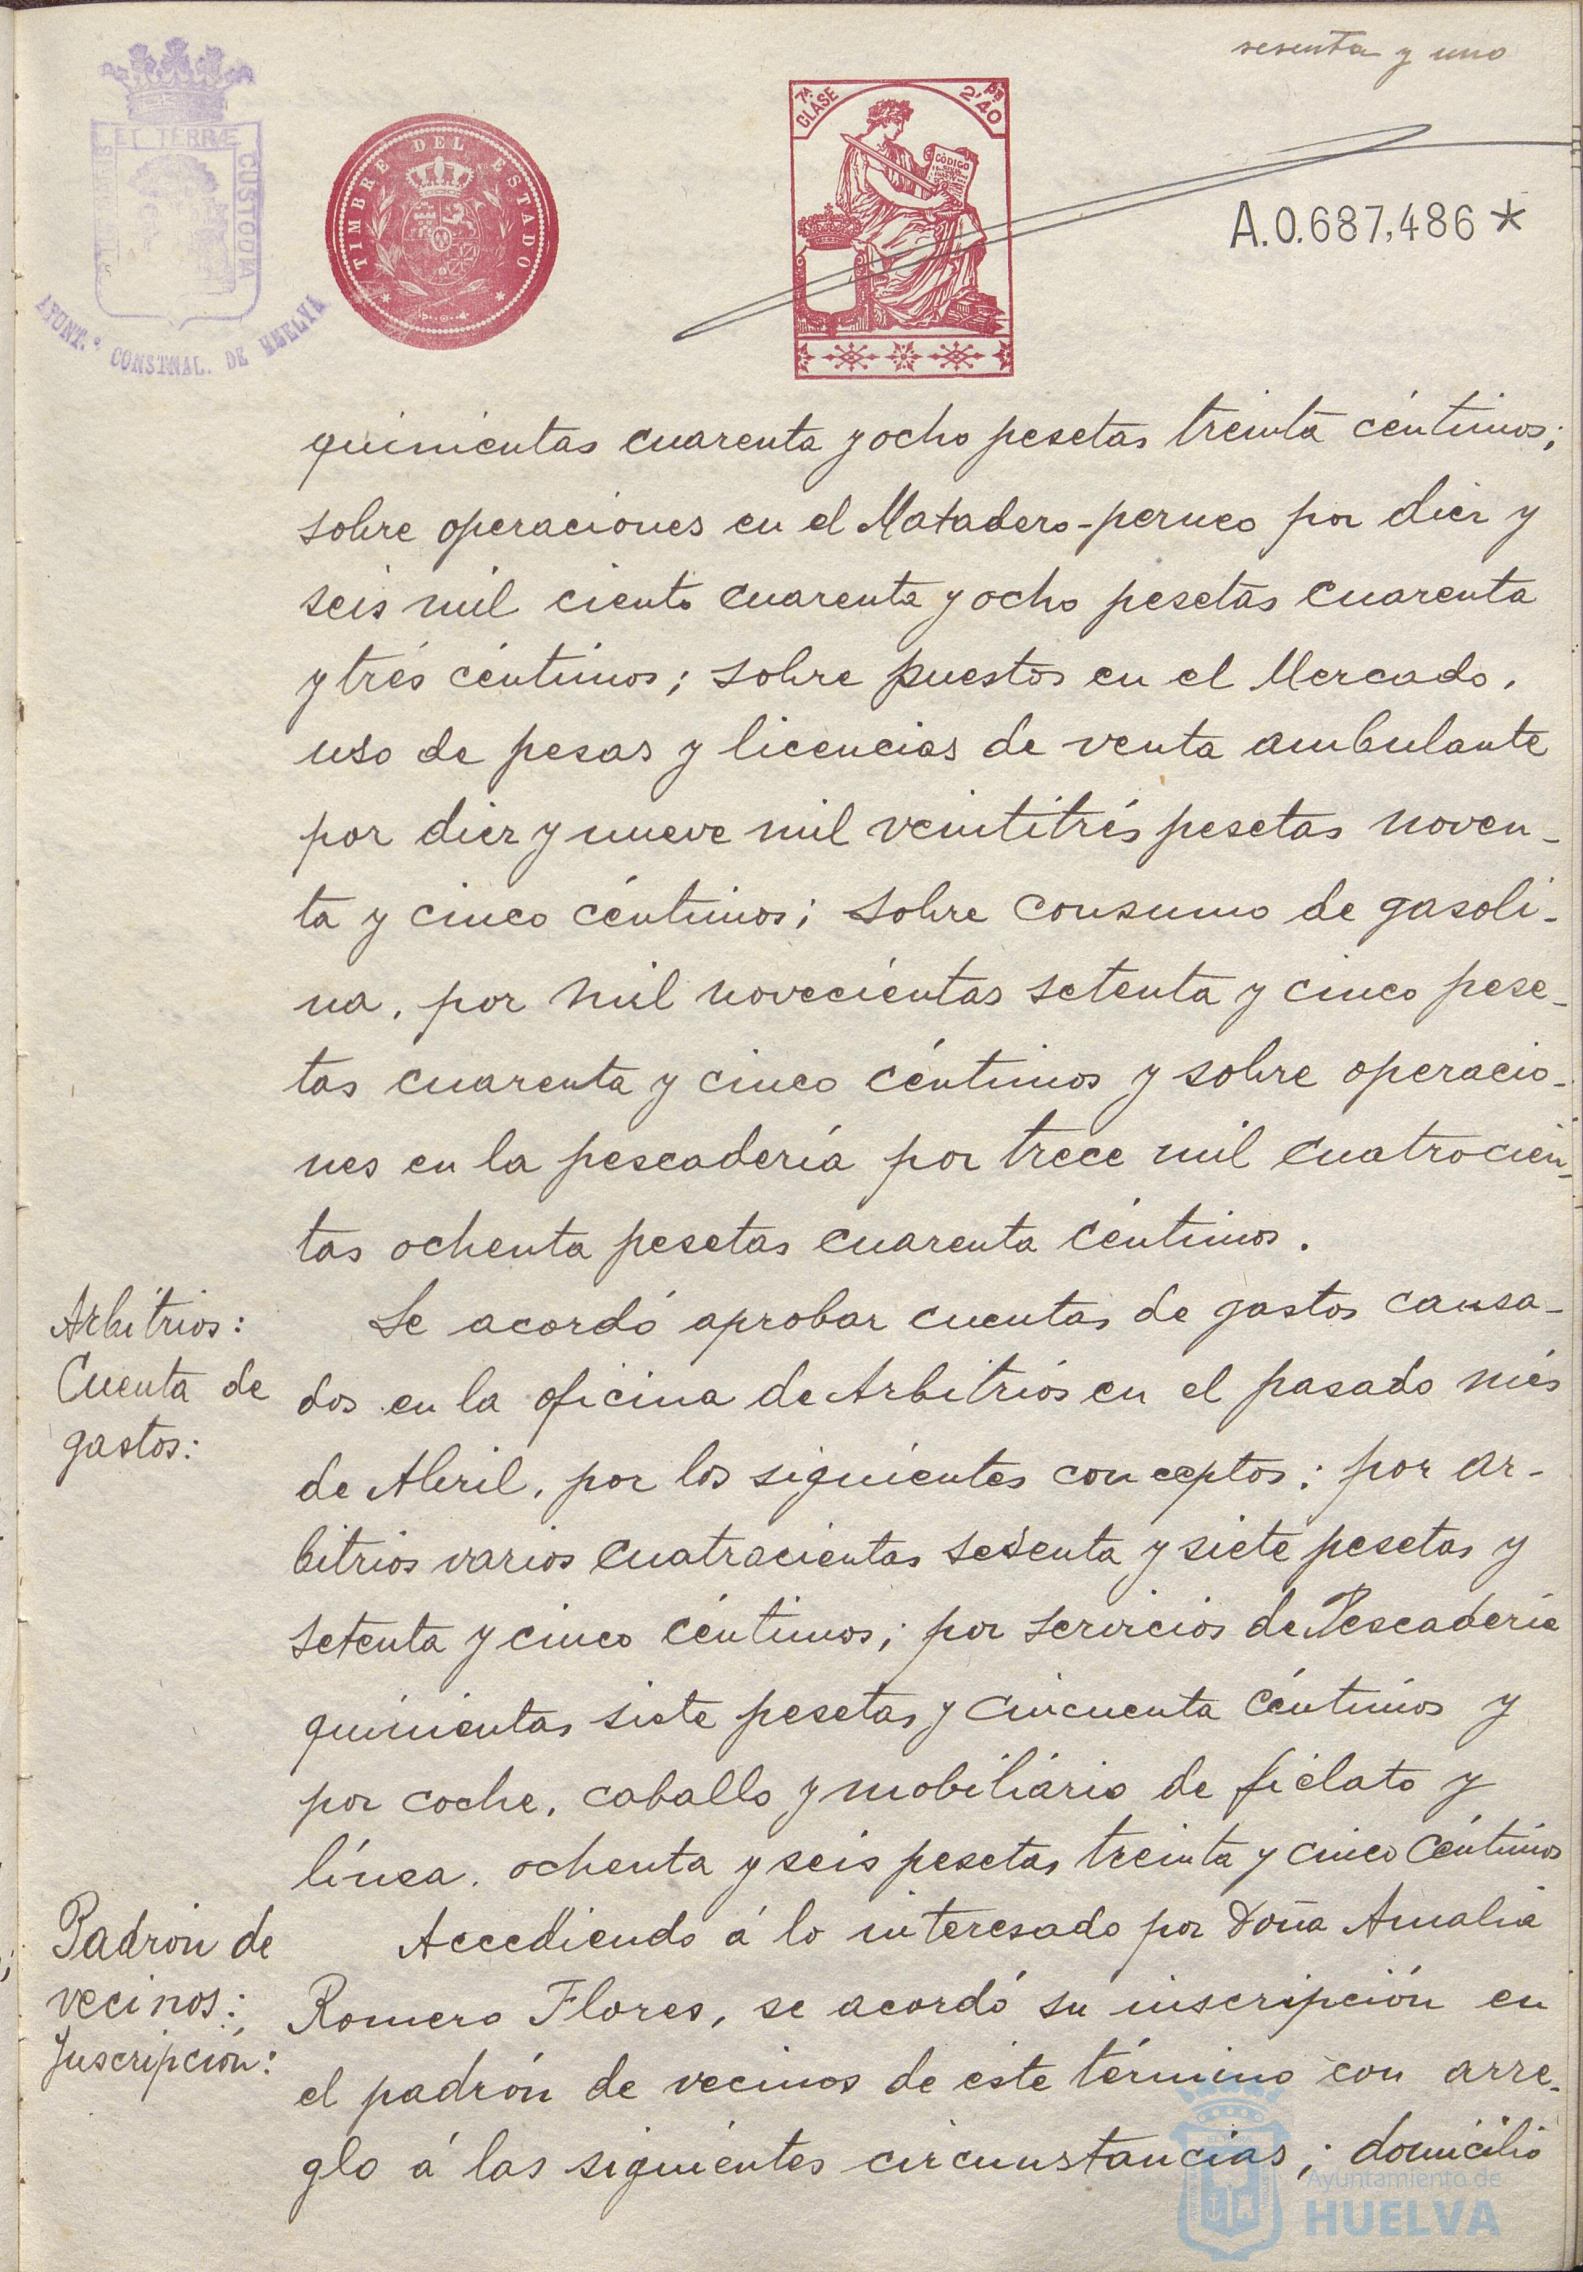 sesenta y uno
PORTUS MARIS ET TERRÆ CUSTODIA
AYUNT.º CONSTNAL. DE HUELVA
TIMBRE DEL ESTADO
7ª CLASE
2'40 Pts
CÓDIGO
A.0.687,486*
quinientas cuarenta y ocho pesetas treinta céntimos;
sobre operaciones en el Matadero-perneo por diez y
seis mil ciento cuarenta y ocho pesetas cuarenta
y trés céntimos; sobre puestos en el Mercado,
uso de pesas y licencias de venta ambulante
por diez y nueve mil veintitrés pesetas noven-
ta y cinco céntimos; sobre consumo de gasoli-
na, por mil novecientas setenta y cinco pese-
tas cuarenta y cinco céntimos y sobre operacio-
nes en la pescadería por trece mil cuatrocien-
tas ochenta pesetas cuarenta céntimos.
Arbitrios:
Cuenta de
gastos:
Se acordó aprobar cuentas de gastos causa-
dos en la oficina de Arbitrios en el pasado més
de Abril, por los siguientes conceptos: por ar-
bitrios varios cuatrocientas sesenta y siete pesetas y
setenta y cinco céntimos; por servicios de Pescadería
quinientas siete pesetas y cincuenta céntimos y
por coche, caballo y mobiliario de fielato y
línea, ochenta y seis pesetas treinta y cinco céntimos
Padrón de
vecinos:
Inscripción:
Accediendo á lo interesado por Doña Amalia
Romero Flores, se acordó su inscripción en
el padrón de vecinos de éste término con arre-
glo á las siguientes circunstancias; domicilio
Ayuntamiento de
HUELVA